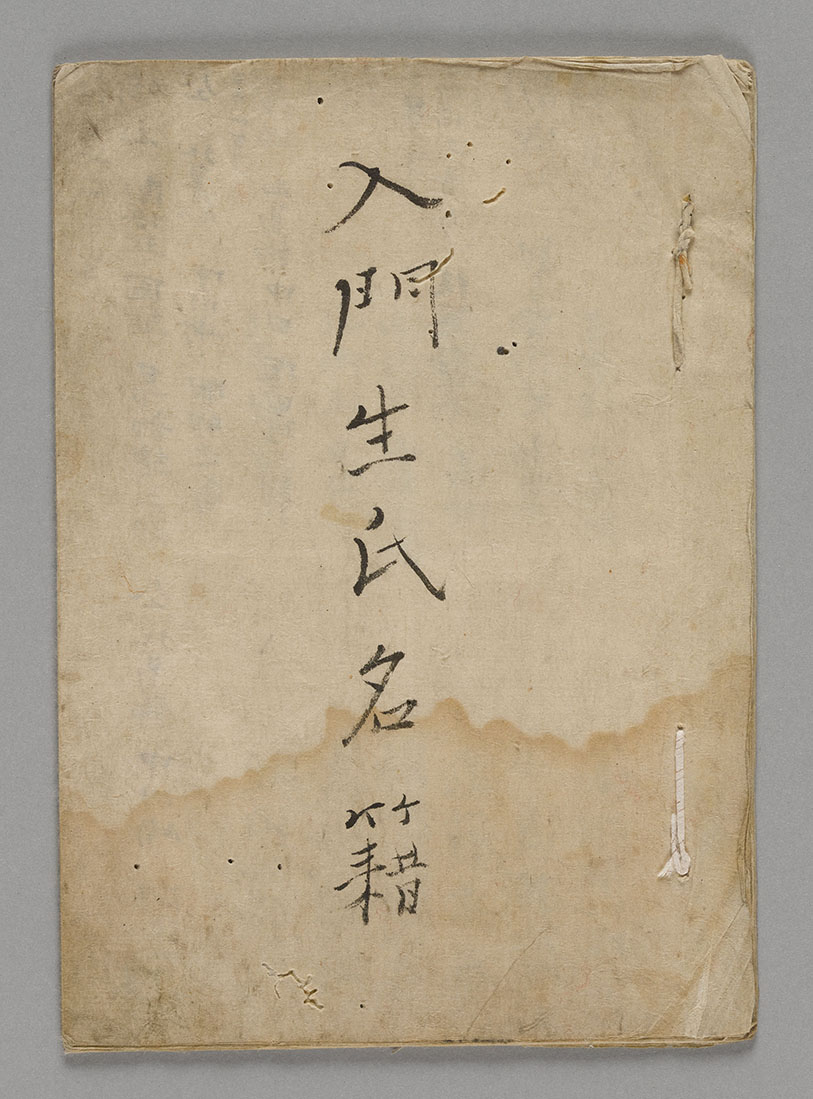 入門生氏名籍